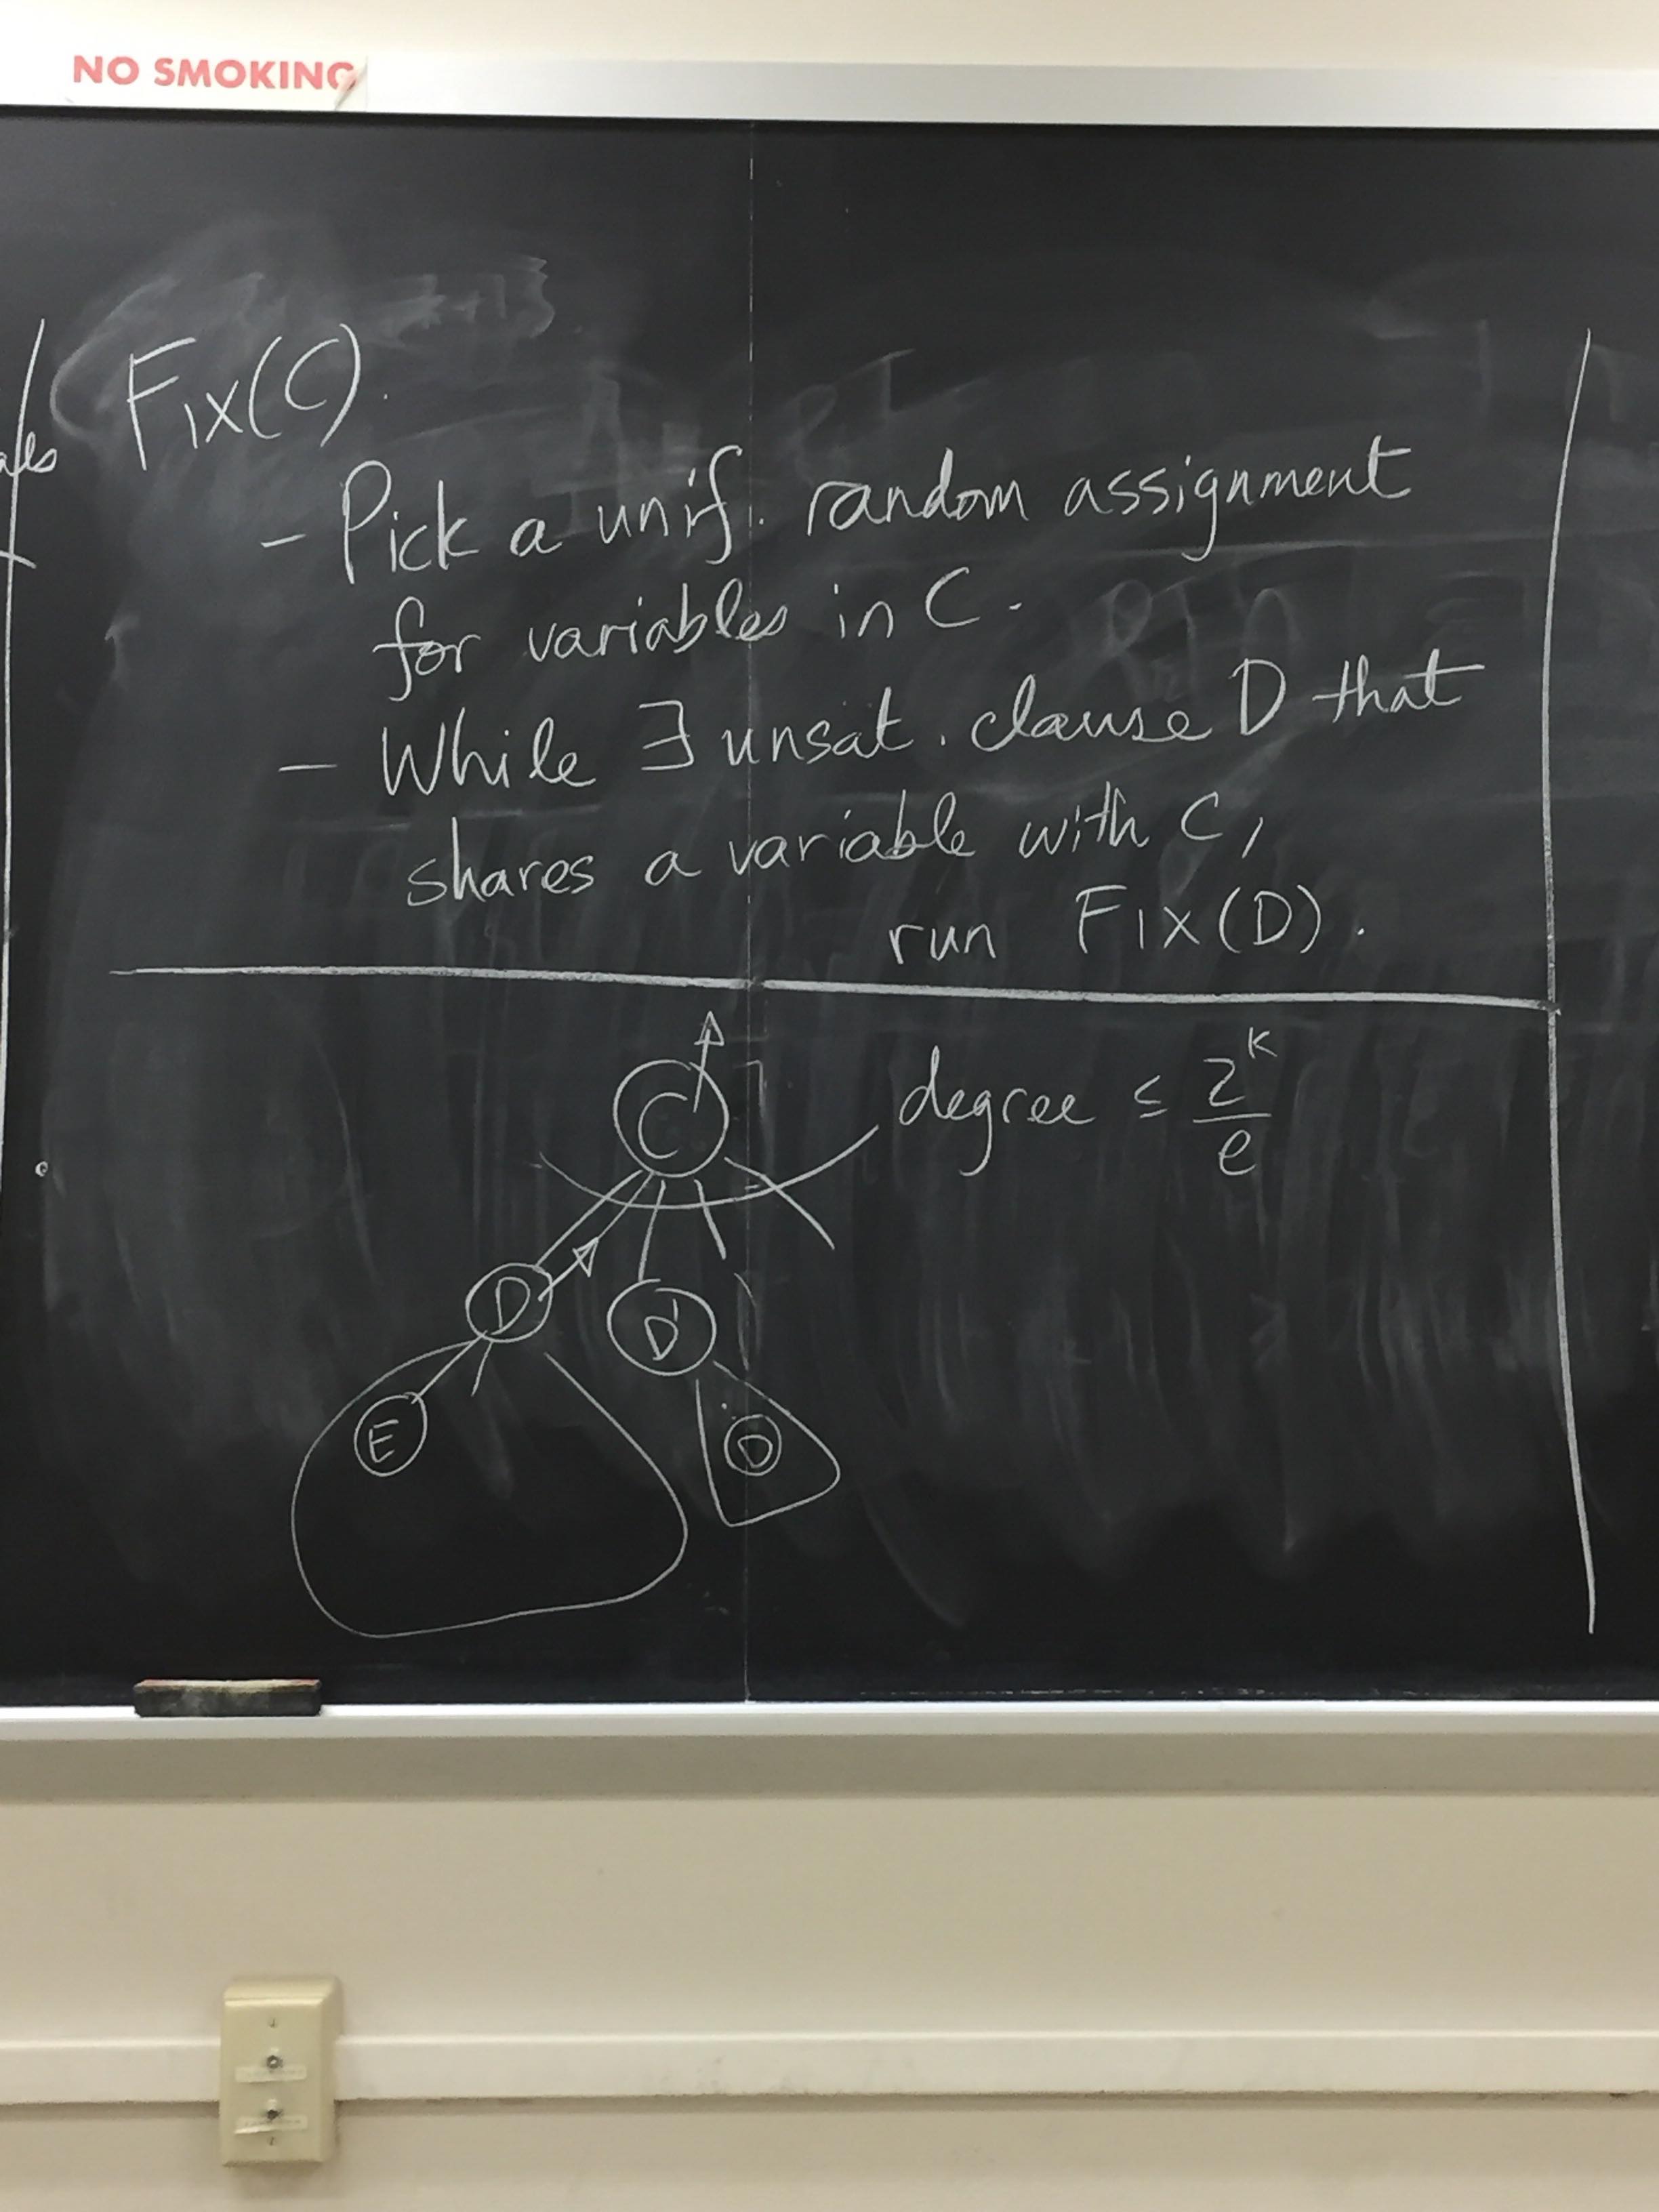 NO SMOKING
Fix(C).
- Pick a unif. random assignment
for variables in C.
- While ∃ unsat. clause D that
shares a variable with C,
run FIX(D).
C
degree ≤ 2^k/e
D
D'
E
D